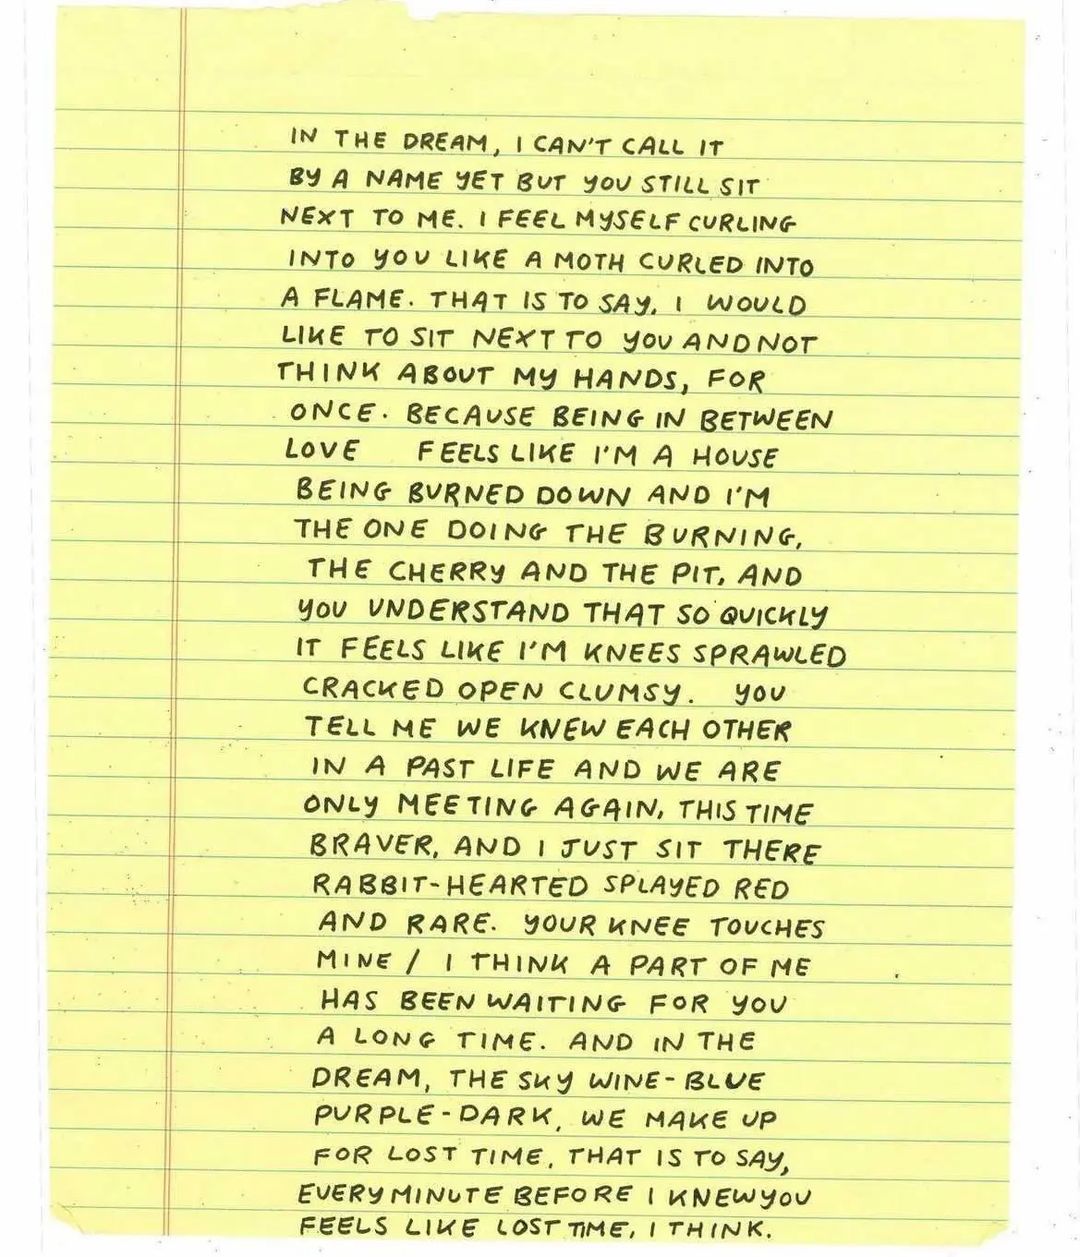 IN THE DREAM, I CAN'T CALL IT
BY A NAME YET BUT YOU STILL SIT
NEXT TO ME. I FEEL MYSELF CURLING
INTO YOU LIKE A MOTH CURLED INTO
A FLAME. THAT IS TO SAY, I WOULD
LIKE TO SIT NEXT TO YOU AND NOT
THINK ABOUT MY HANDS, FOR
ONCE. BECAUSE BEING IN BETWEEN
LOVE FEELS LIKE I'M A HOUSE
BEING BURNED DOWN AND I'M
THE ONE DOING THE BURNING,
THE CHERRY AND THE PIT, AND
YOU UNDERSTAND THAT SO QUICKLY
IT FEELS LIKE I'M KNEES SPRAWLED
CRACKED OPEN CLUMSY. YOU
TELL ME WE KNEW EACH OTHER
IN A PAST LIFE AND WE ARE
ONLY MEETING AGAIN, THIS TIME
BRAVER, AND I JUST SIT THERE
RABBIT-HEARTED SPLAYED RED
AND RARE. YOUR KNEE TOUCHES
MINE / I THINK A PART OF ME
HAS BEEN WAITING FOR YOU
A LONG TIME. AND IN THE
DREAM, THE SKY WINE-BLUE
PURPLE-DARK, WE MAKE UP
FOR LOST TIME, THAT IS TO SAY,
EVERY MINUTE BEFORE I KNEW YOU
FEELS LIKE LOST TIME, I THINK.